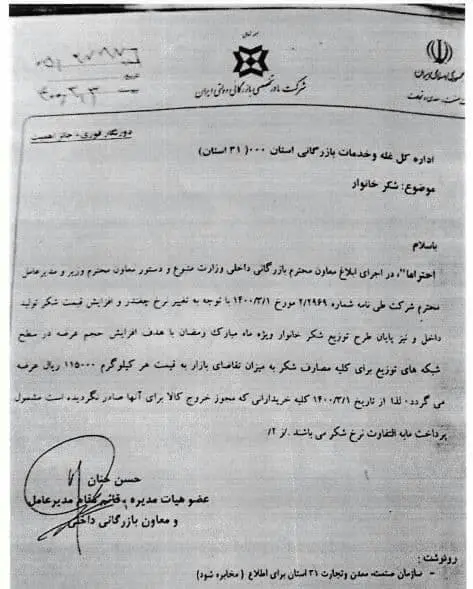 جمهوری اسلامی ایران
شرکت مادر تخصصی بازرگانی دولتی ایران
دورنگار فوری - حائز اهمیت
اداره کل غله وخدمات بازرگانی استان ۰۰۰( ۳۱ استان)
موضوع: شکر خانوار
باسلام
احتراما"، در اجرای ابلاغ معاون محترم بازرگانی داخلی وزارت متبوع و دستور معاون محترم وزیر و مدیرعامل
محترم شرکت طی نامه شماره ۲/۲۹۶۹ مورخ ۱۴۰۰/۳/۱ با توجه به تغییر نرخ چغندر و افزایش قیمت شکر تولید
داخل و نیز پایان طرح توزیع شکر خانوار ویژه ماه مبارک رمضان با هدف افزایش حجم عرضه در سطح
شبکه های توزیع برای کلیه مصارف شکر به میزان تقاضای بازار به قیمت هر کیلوگرم ۱۱۵۰۰۰ ریال عرضه
می گردد۰ لذا از تاریخ ۱۴۰۰/۳/۱ کلیه خریدارانی که مجوز خروج کالا برای آنها صادر نگردیده است مشمول
پرداخت مابه التفاوت نرخ شکر می باشند ./ز ۲
حسن حنان
عضو هیات مدیره ، قائم مقام مدیرعامل
و معاون بازرگانی داخلی
رونوشت :
- سازمان صنعت، معدن وتجارت ۳۱ استان برای اطلاع ( مخابره شود)